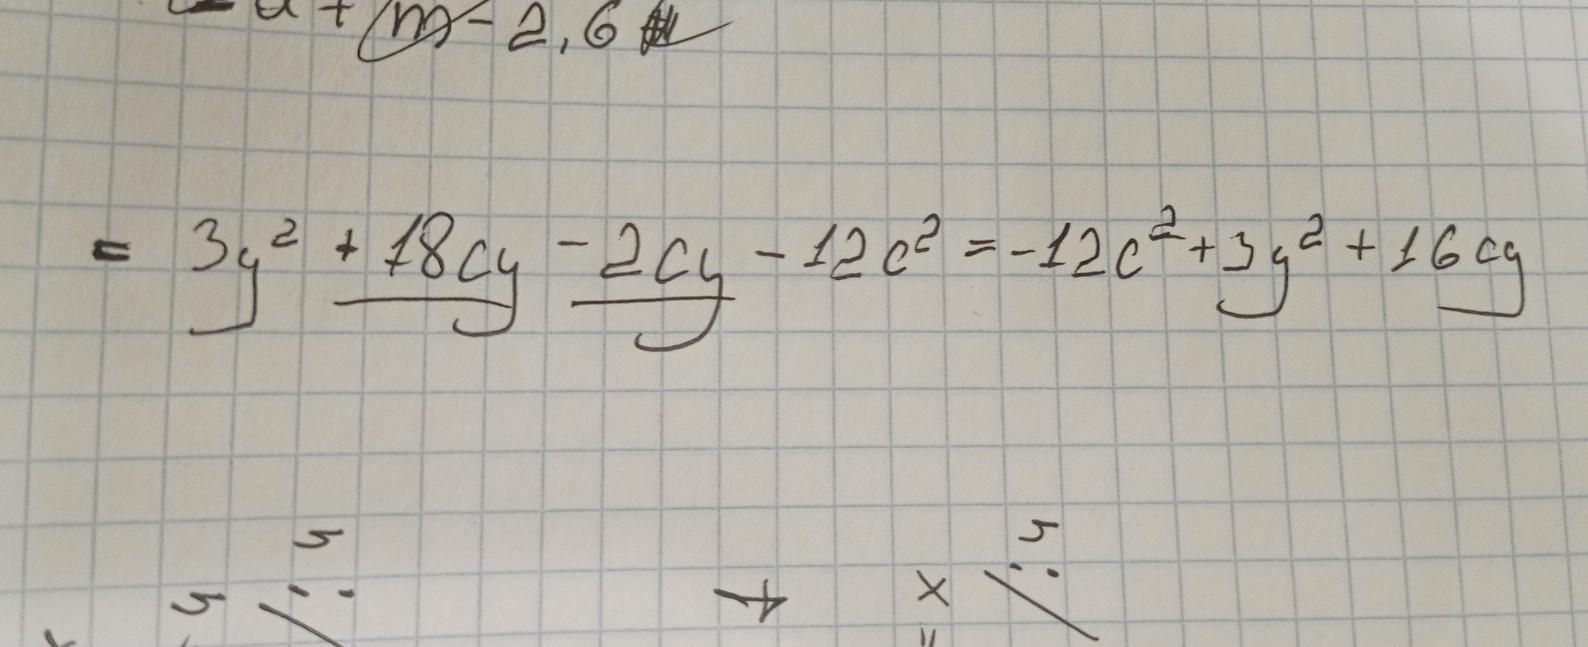 + m - 2,6
= 3y² + 18cy - 2cy - 12c² = -12c² + 3y² + 16cy